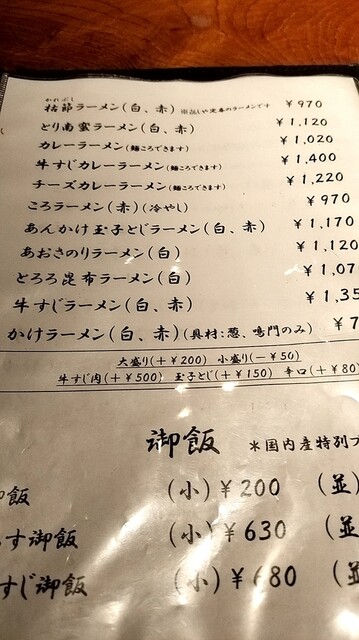 かれぶし
枯節ラーメン(白、赤) ※だし いや 定番のラーメンです ¥970
とり南蛮ラーメン(白、赤) ¥1,120
カレーラーメン(麺ころできます) ¥1,020
牛すじカレーラーメン(麺ころできます) ¥1,400
チーズカレーラーメン(麺ころできます) ¥1,220
ころラーメン(赤)(冷やし) ¥970
あんかけ玉子とじラーメン(白、赤) ¥1,170
あおさのりラーメン(白) ¥1,120
とろろ昆布ラーメン(白) ¥1,07
牛すじラーメン(白、赤) ¥1,35
かけラーメン(白、赤)(具材:葱、鳴門のみ) ¥7
大盛り(+¥200) 小盛り(-¥50)
牛すじ肉(+¥500) 玉子とじ(+¥150) 辛口(+¥80)
御飯 *国内産特別
御飯 (小)¥200 (並)
す御飯 (小)¥630 (並)
すじ御飯 (小)¥680